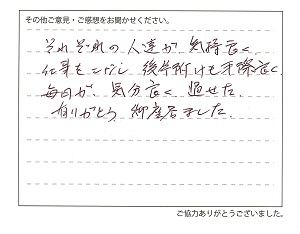 その他ご意見・ご感想をお聞かせください。
それぞれの人達が、気持良く、
仕事をこなし 後片附けも手際良く、
毎日が、気分良く 過せた。
有りがとう 御座居ました。
ご協力ありがとうございました。